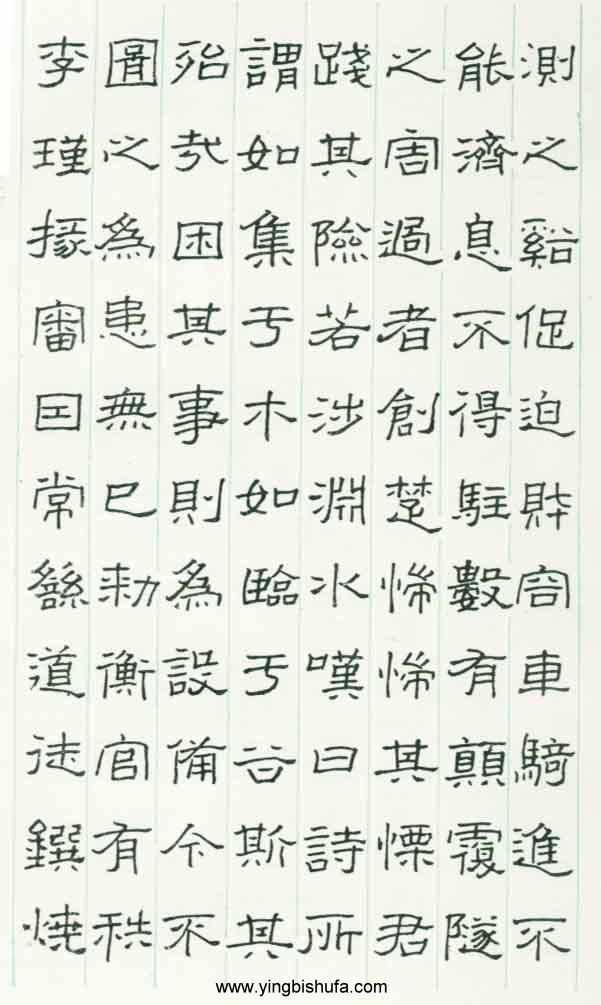 測之谿促迫財容車騎進不
能濟息不得駐數有顛覆隧
之害過者創楚惴惴其慄君
踐其險若涉淵水嘆曰詩所
謂如集于木如臨于谷斯其
殆哉困其事則為設備今不
圖之為患無已勑衡官有秩
李瑾掾審因常繇道徒鐉燒
www.yingbishufa.com